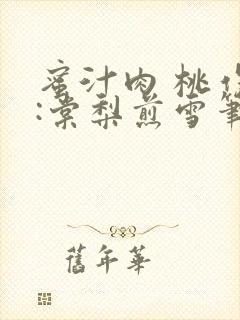 蜜汁肉桃
:棠梨煎雪
舊年華